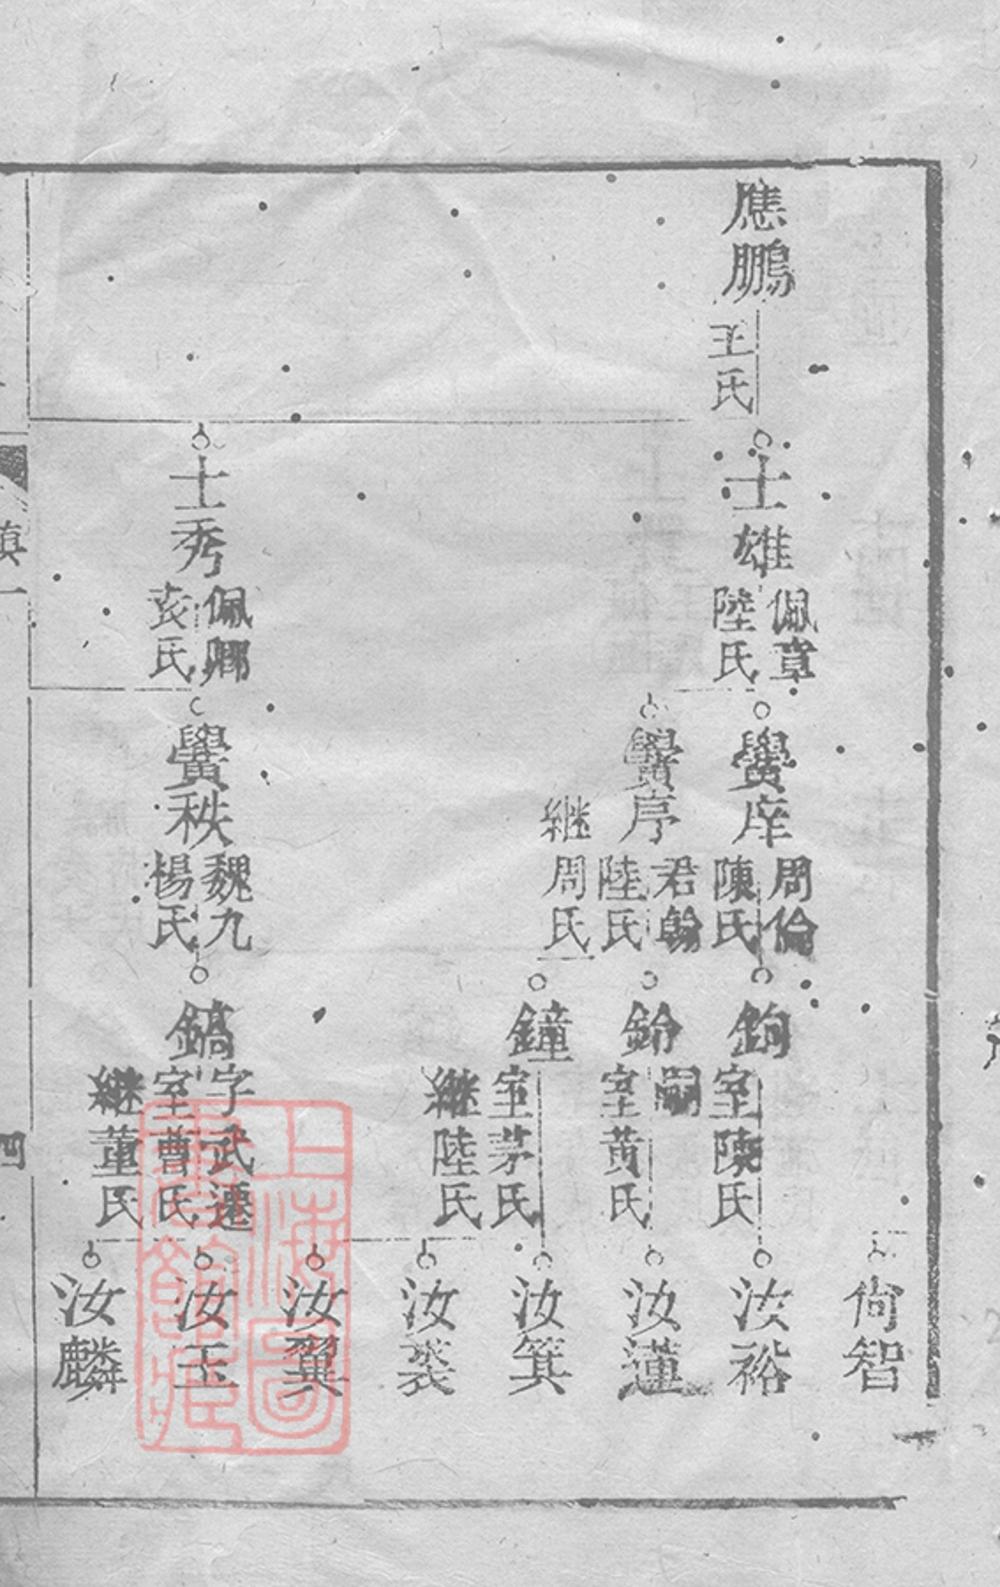 應鵬
王氏
士雄
佩章
陸氏
士秀
佩卿
袁氏
黌庠
周倫
陳氏
黌序
君翰
陸氏
継周氏
黌秩
魏九
楊氏
鈞
室陳氏
鈴
嗣
室黄氏
鐘
室茅氏
継陸氏
鎬
字武遷
室曹氏
継董氏
尙智
汝裕
汝蓮
汝箕
汝裘
汝翼
汝玉
汝麟
四
上海圖書館藏